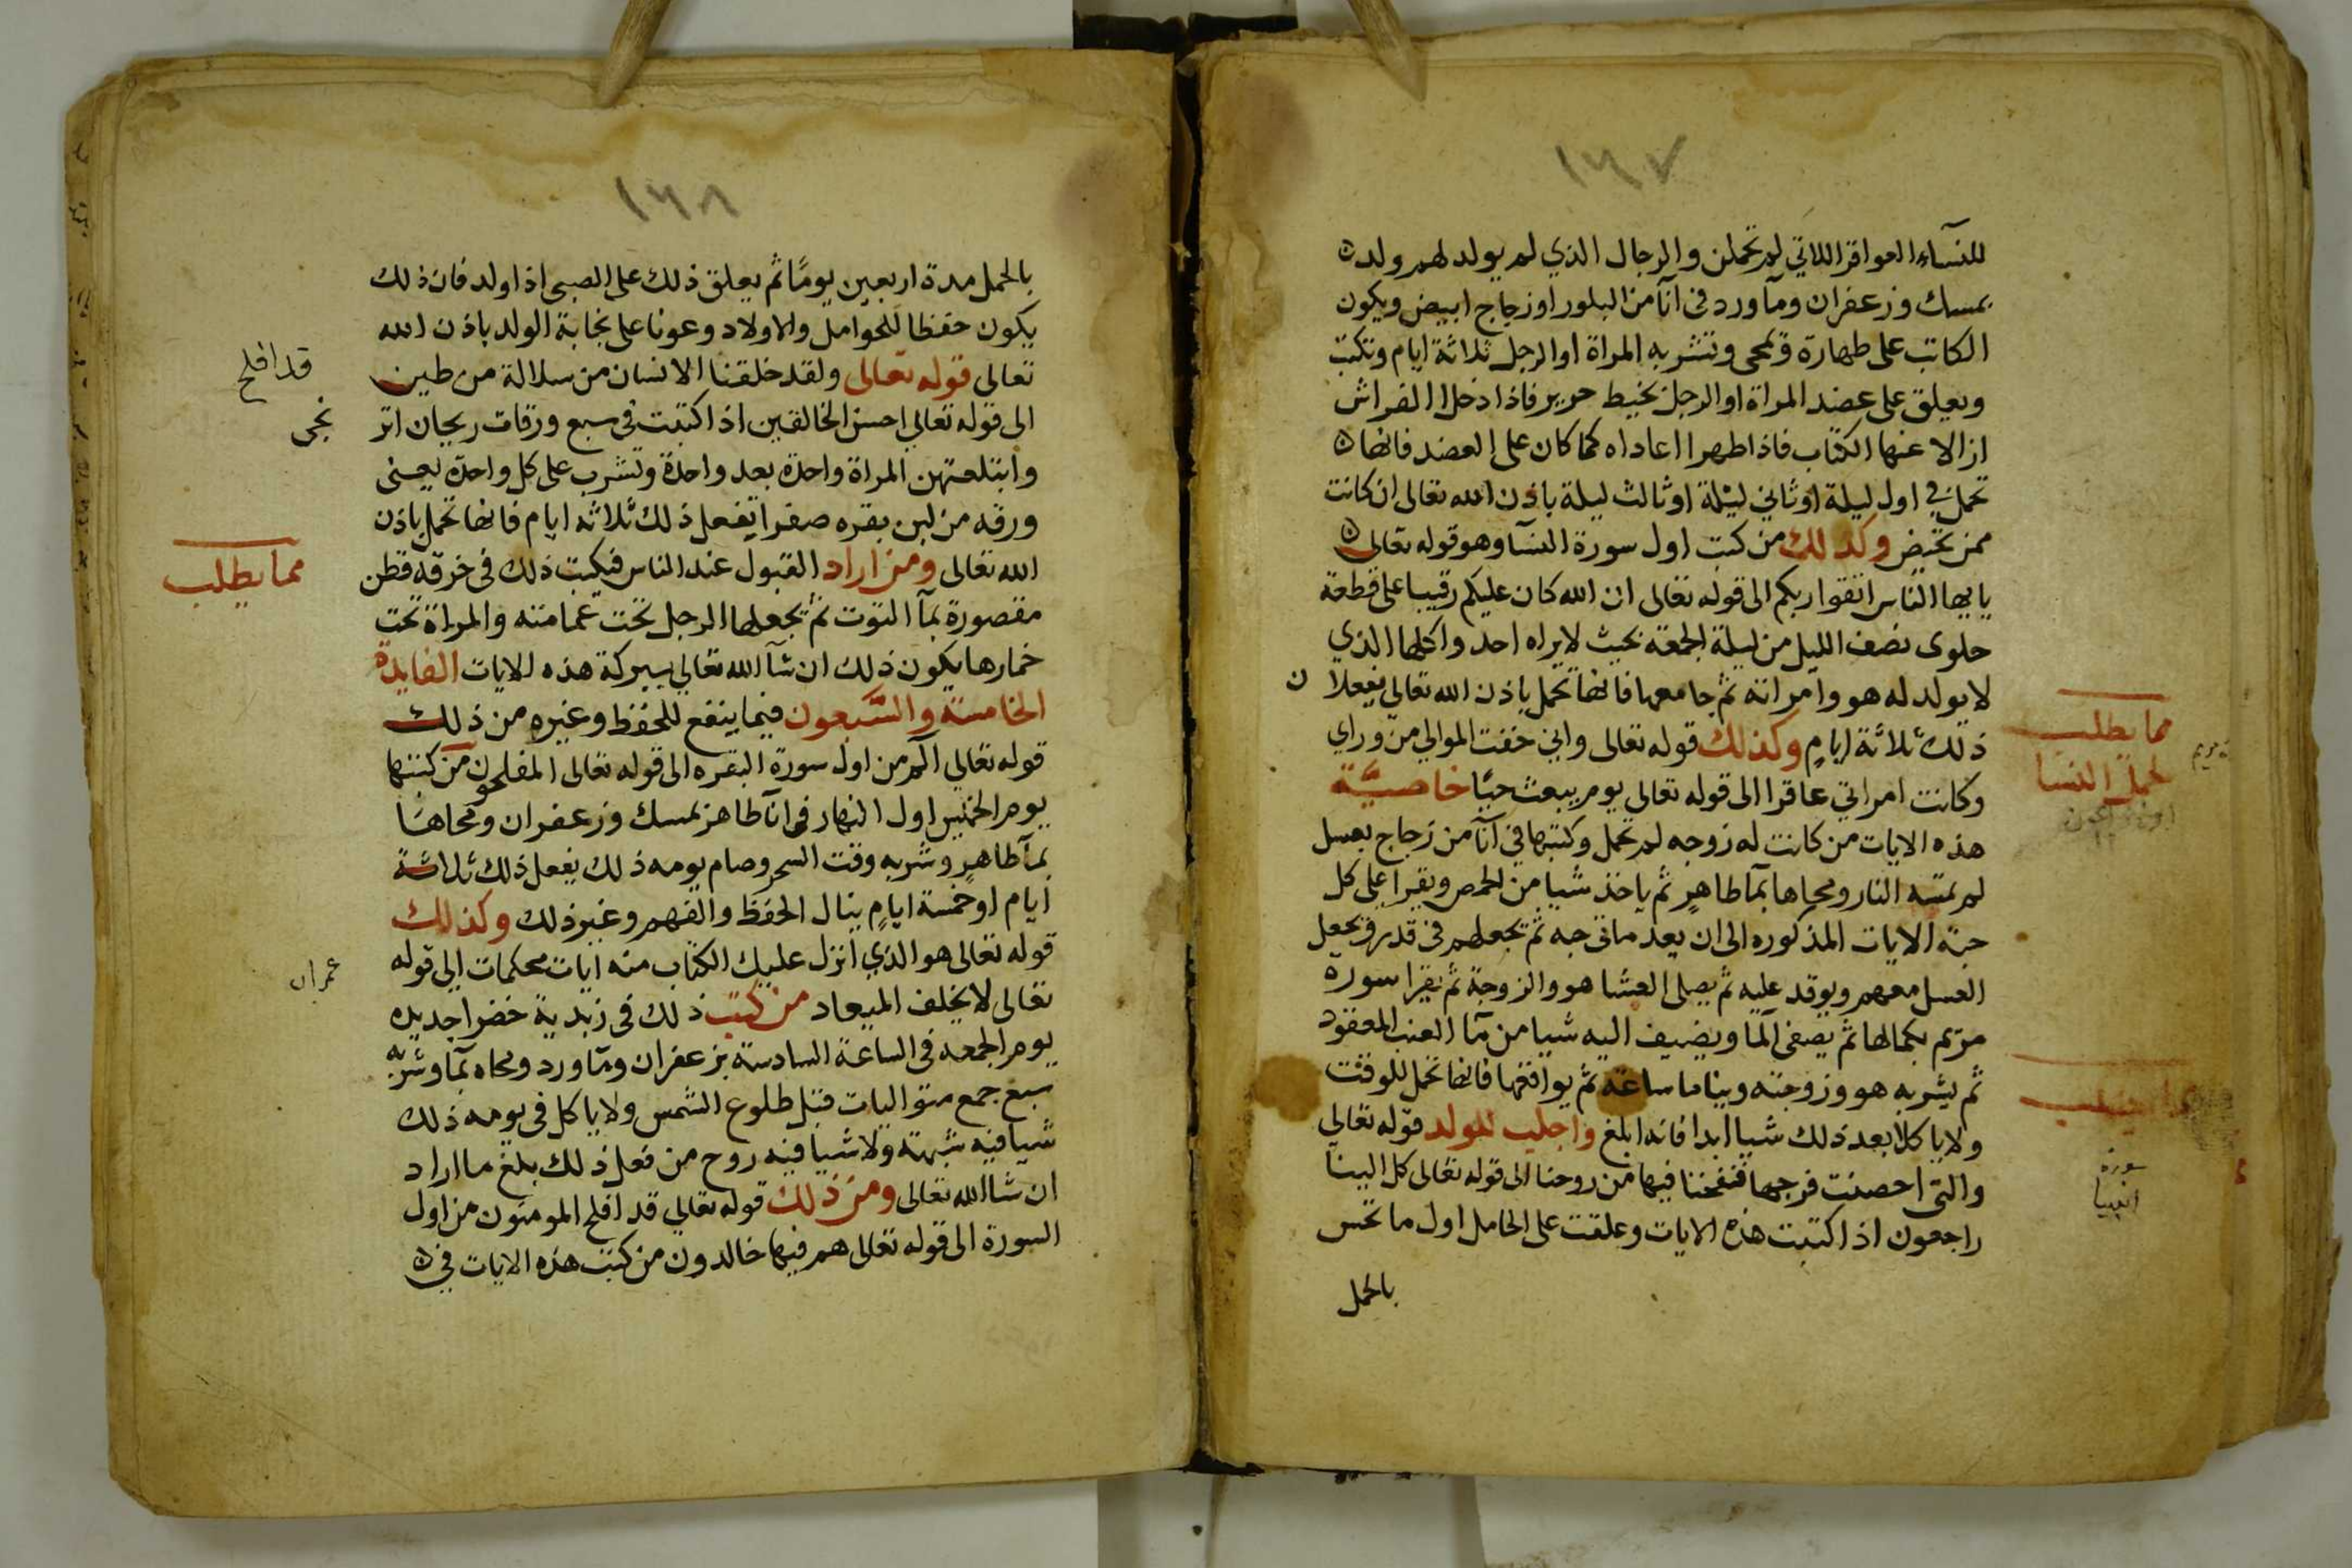 ١٦٧
للنسآء العواقر اللاتي لم تحملن والرجال الذي لم يولد لهم ولد
بمسك وزعفران ومآورد فى آنآ من البلور او زجاج ابيض ويكون
الكاتب على طهارة وتمحى وتشربه المراة او الرجل ثلاثة ايام وتكتب
ويعلق على عضد المراة او الرجل بخيط حرير فاذا دخلا الفراش
ازالا عنها الكتاب فاذا طهرا اعاداه كما كان على العضد فانها
تحمل في اول ليلة او ثاني ليلة او ثالث ليلة باذن الله تعالى ان كانت
ممن تحيض وكذلك من كتب اول سورة النسآ وهو قوله تعالى
يايها الناس اتقوا ربكم الى قوله تعالى ان الله كان عليكم رقيبا على قطعة
حلوى نصف الليل من ليلة الجمعة بحيث لا يراه احد واكلها الذي
لا يولد له هو وامراته ثم جامعها فانها تحمل باذن الله تعالى يفعلان
ذلك ثلاثة ايام وكذلك قوله تعالى واني خفت الموالي من وراي
وكانت امراتي عاقرا الى قوله تعالى يوم يبعث حيًا خاصيّة
هذه الايات من كانت له زوجه لم تحمل وكتبها في آنآ من زجاج بعسل
لم تمسه النار ومحاها بمآ طاهرٍ ثم ياخذ شيا من الحمص ويقرا على كل
حبة الايات المذكوره الى ان يعد مانتي حبه ثم يجعلهم فى قدر ويجعل
العسل معهم ويوقد عليه ثم يصلى العشا هو والزوجة ثم يقرا سورة
مريم بكمالها ثم يصفى الما ويضيف اليه شيا من مآ العنب المعقود
ثم يشربه هو وزوجته ويناما ساعة ثم يواقعها فانها تحمل للوقت
ولا ياكلا بعد ذلك شيا ابدا فانه ابلغ واجلب للولد قوله تعالي
والتى احصنت فرجها فنفخنا فيها من روحنا الى قوله تعالى كل الينا
راجعون اذا كتبت هذه الايات وعلقت على الحامل اول ما تحس
بالحمل
مما يطلب
لحمل النسا
سورة
انبيا
١٦٨
بالحمل مدة اربعين يومًا ثم يعلق ذلك على الصبى اذا ولد فان ذلك
يكون حفظا للحوامل والاولاد وعونا على نجابة الولد باذن الله
تعالى قوله تعالى ولقد خلقنا الانسان من سلالة من طين
الى قوله تعالي احسن الخالقين اذا كتبت في سبع ورقات ريحان اتر
وابتلعتهن المراة واحدة بعد واحدة وتشرب على كل واحدة يعنى
ورقه من لبن بقره صفرا تفعل ذلك ثلاثه ايام فانها تحمل باذن
الله تعالى ومن اراد القبول عند الناس فيكتب ذلك فى خرقة قطن
مقصورة بمآ التوت ثم تجعلها الرجل تحت عمامته والمراة تحت
خمارها يكون ذلك ان شآ الله تعالي ببركة هذه الايات الفايدة
الخامسة والسّبعون فيما ينفع للحفظ وغيره من ذلك
قوله تعالي الٓم من اول سورة البقره الى قوله تعالى المفلحون من كتبها
يوم الخميس اول النهار فى انآ طاهر بمسك وزعفران ومحاها
بمآ طاهرٍ وشربه وقت السحر وصام يومه ذلك يفعل ذلك ثلاثة
ايام او خمسة ايامٍ ينال الحفظ والفهم وغير ذلك وكذلك
قوله تعالى هو الذي انزل عليك الكتاب منه ايات محكمات الى قوله
تعالى لا يخلف الميعاد من كتب ذلك فى زبدية خضرا جديده
يوم الجمعه فى الساعة السادسة بزعفران ومآورد ومحاه بمآ وشربه
سبع جمع متواليات قبل طلوع الشمس ولا ياكل فى يومه ذلك
شيا فيه شبهة ولا شيا فيه روح من فعل ذلك بلغ ما اراد
ان شا الله تعالى ومن ذلك قوله تعالي قد افلح المومنون من اول
السورة الى قوله تعالى هم فيها خالدون من كتب هذه الايات في
قد افلح
مما يطلب
عمران